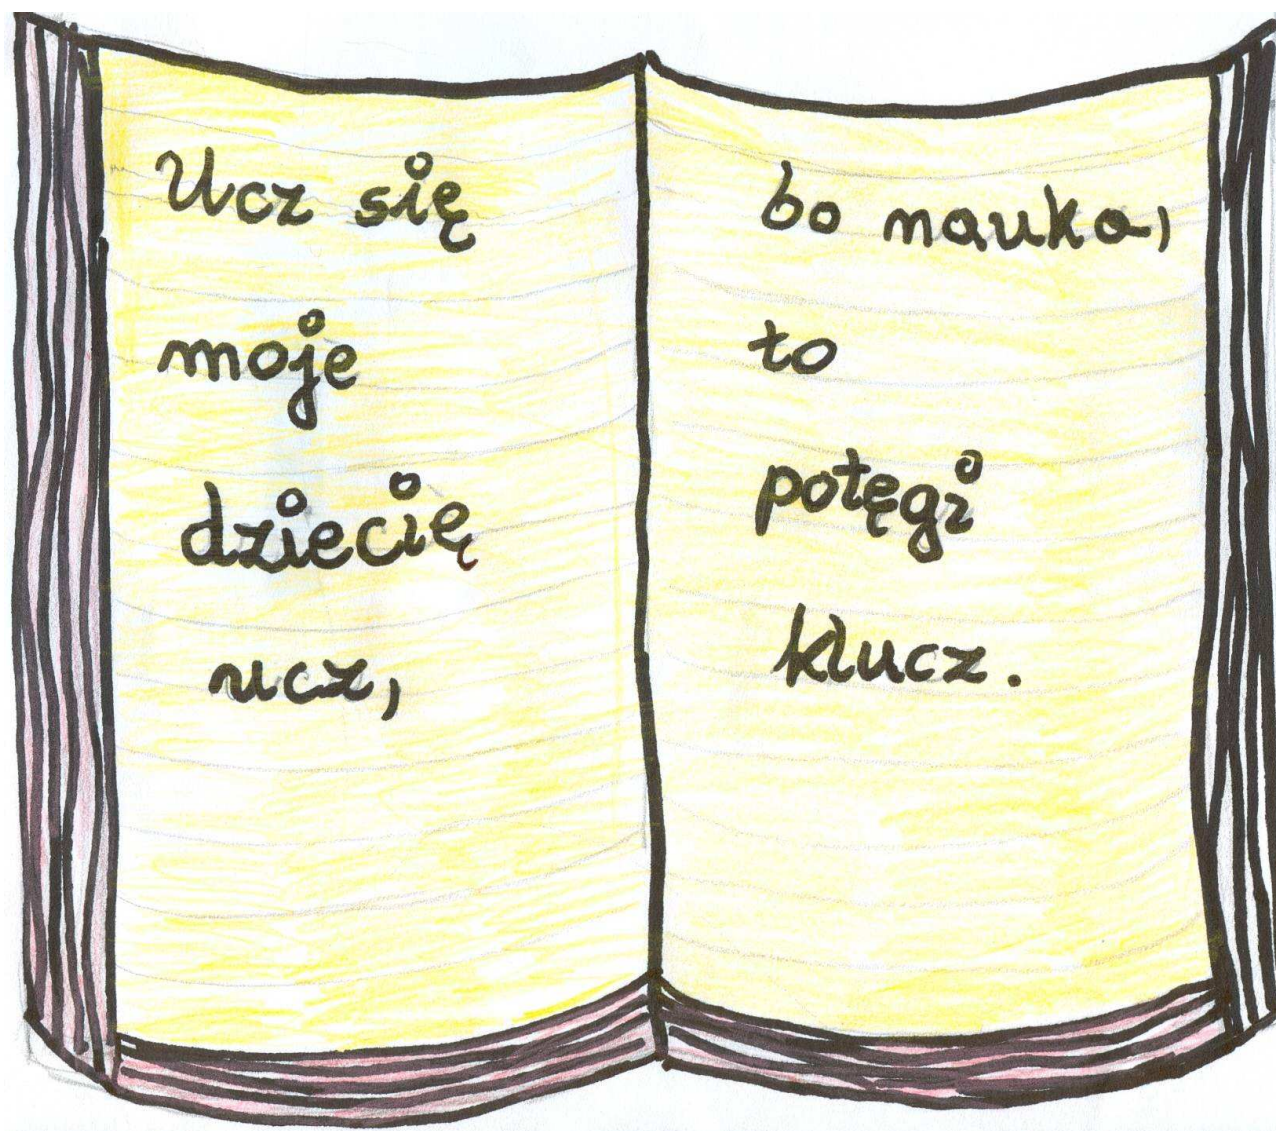 Ucz się
moje
dziecię
ucz,
bo nauka,
to
potęgi
klucz.